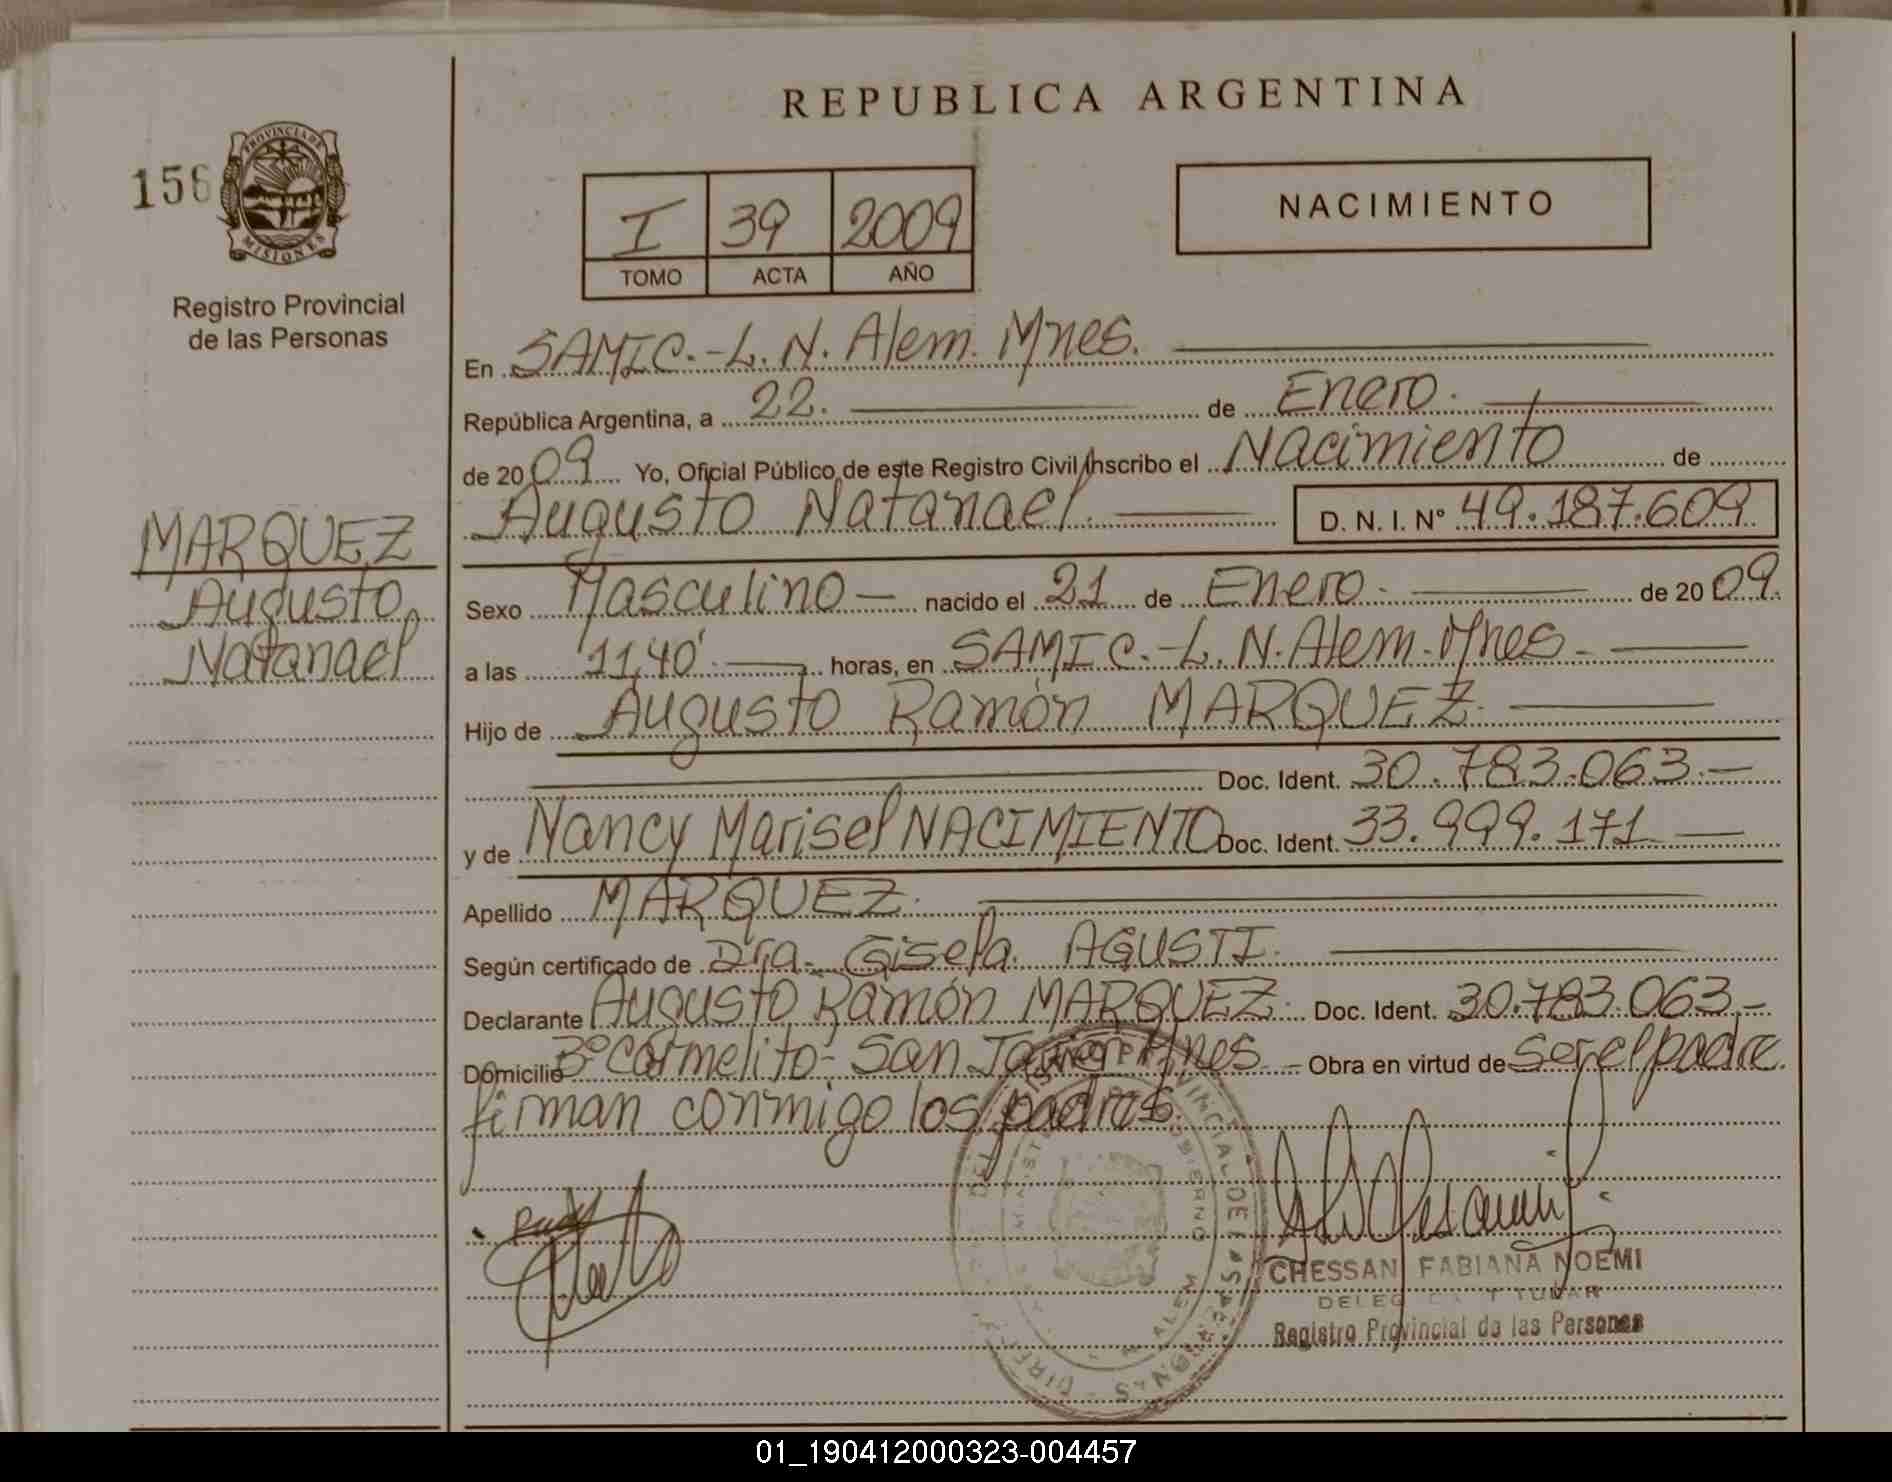 REPUBLICA ARGENTINA
156
PROVINCIA DE
MISIONES
Registro Provincial
de las Personas
I 39 2009
TOMO ACTA AÑO
NACIMIENTO
En SAMIC.-L.N. Alem. Mnes.
República Argentina, a 22. de Enero.
de 2009 Yo, Oficial Público de este Registro Civil Inscribo el Nacimiento de
Augusto Natanael. D. N. I. Nº 49.187.609
MARQUEZ
Augusto
Natanael
Sexo Masculino nacido el 21 de Enero. de 2009.
a las 11,40' horas, en SAMIC.-L.N. Alem. Mnes.
Hijo de Augusto Ramón MARQUEZ.
Doc. Ident. 30.783.063.-
y de Nancy Marisel NACIMIENTO Doc. Ident. 33.999.171
Apellido MARQUEZ.
Según certificado de Dra. Gisela AGUSTI.
Declarante Augusto Ramón MARQUEZ. Doc. Ident. 30.783.063.-
Domicilio Bº Carmelito- San Javier Mnes. Obra en virtud de ser el padre.
firman conmigo los padres.
CHESSANI FABIANA NOEMI
Registro Provincial de las Personas
01_190412000323-004457